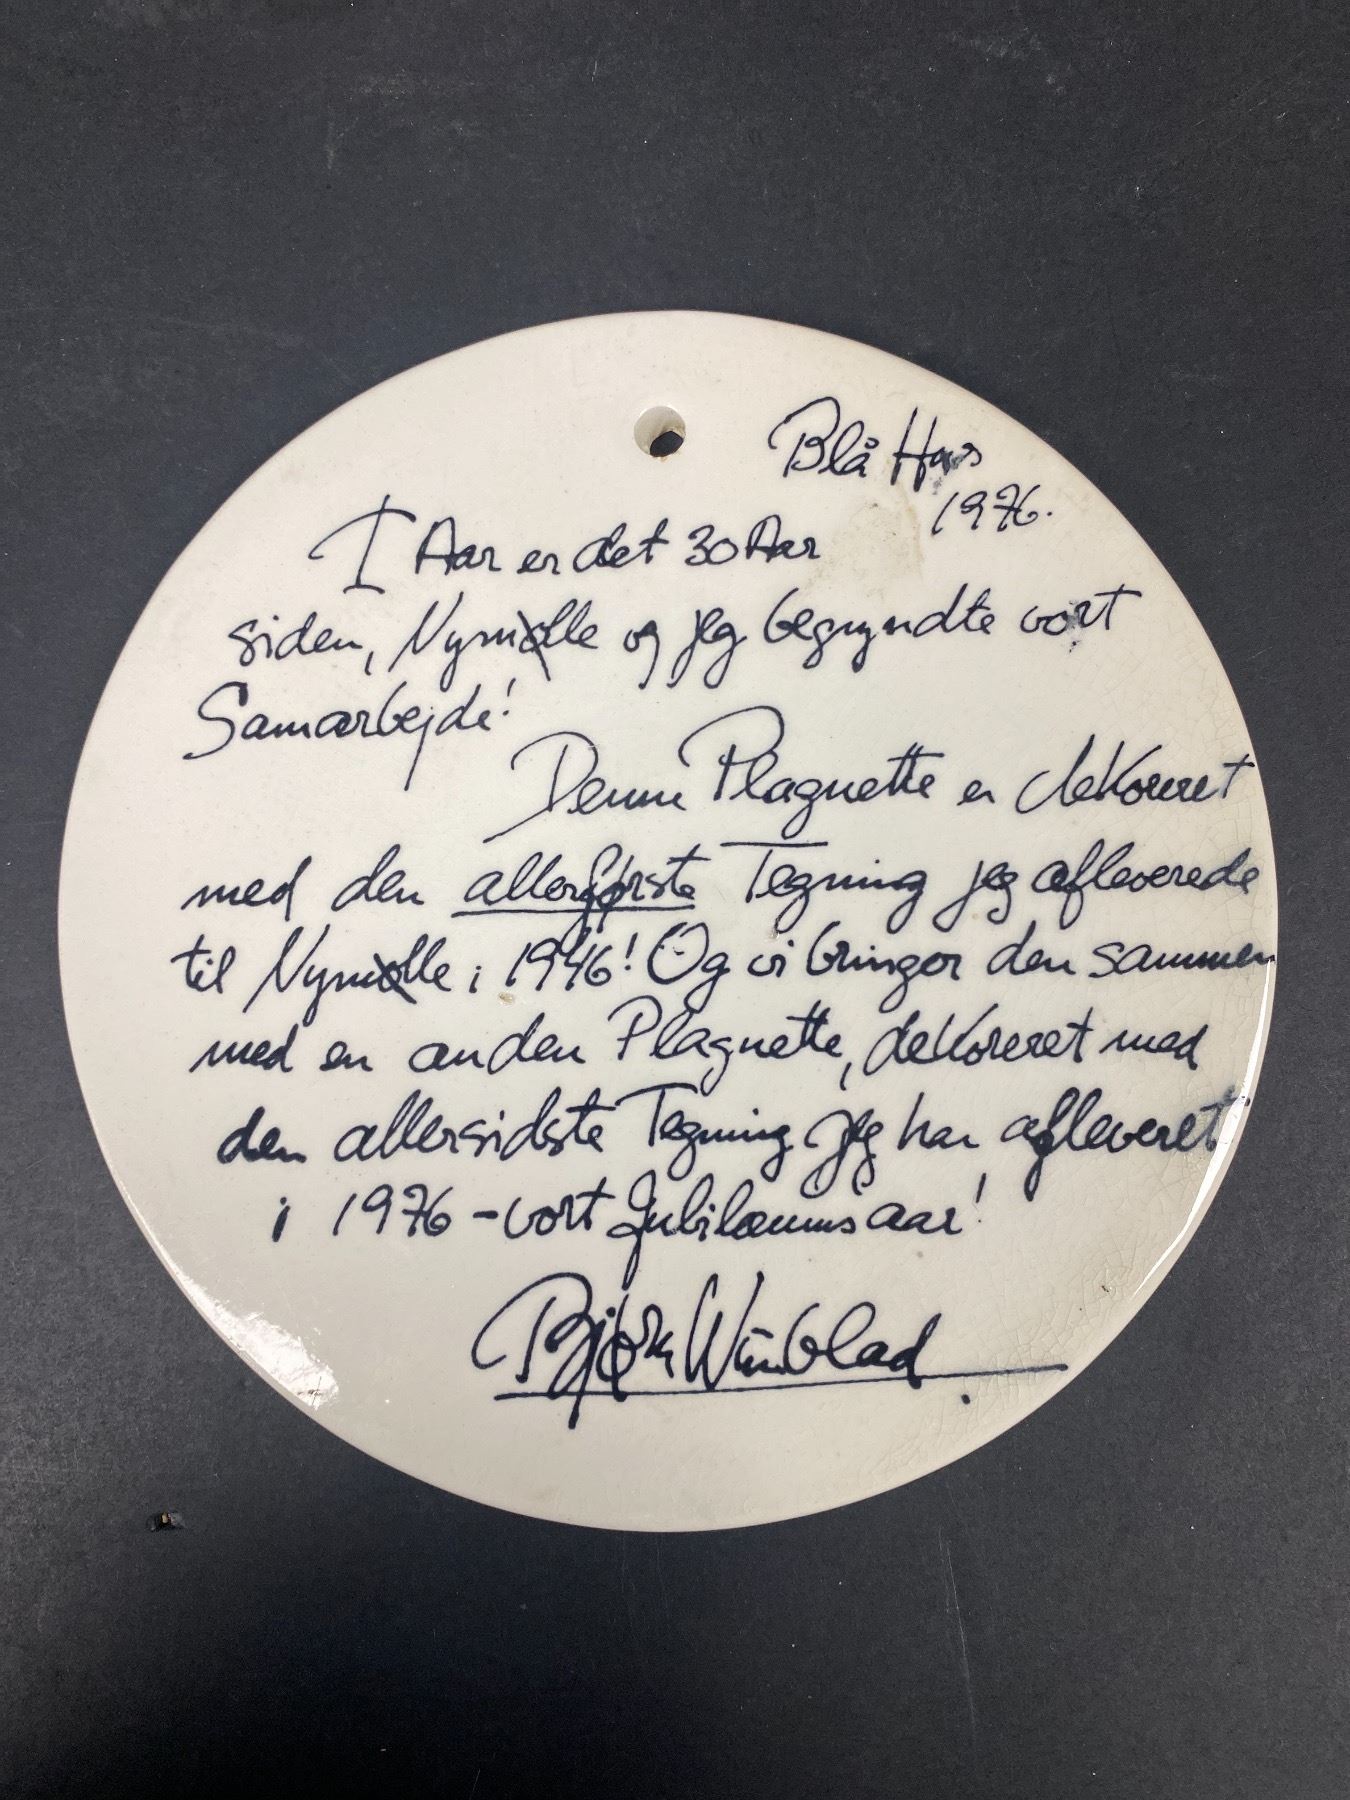 Blå Hus
1976.
I Aar er det 30 Aar
siden, Nymølle og jeg begyndte vort
Samarbejde!
Denne Plaquette er dekoreret
med den allerførste Tegning jeg afleverede
til Nymølle i 1946! Og vi bringer den sammen
med en anden Plaquette, dekoreret med
den allersidste Tegning jeg har afleveret
i 1976 - vort Jubilæumsaar!
Bjørn Wiinblad